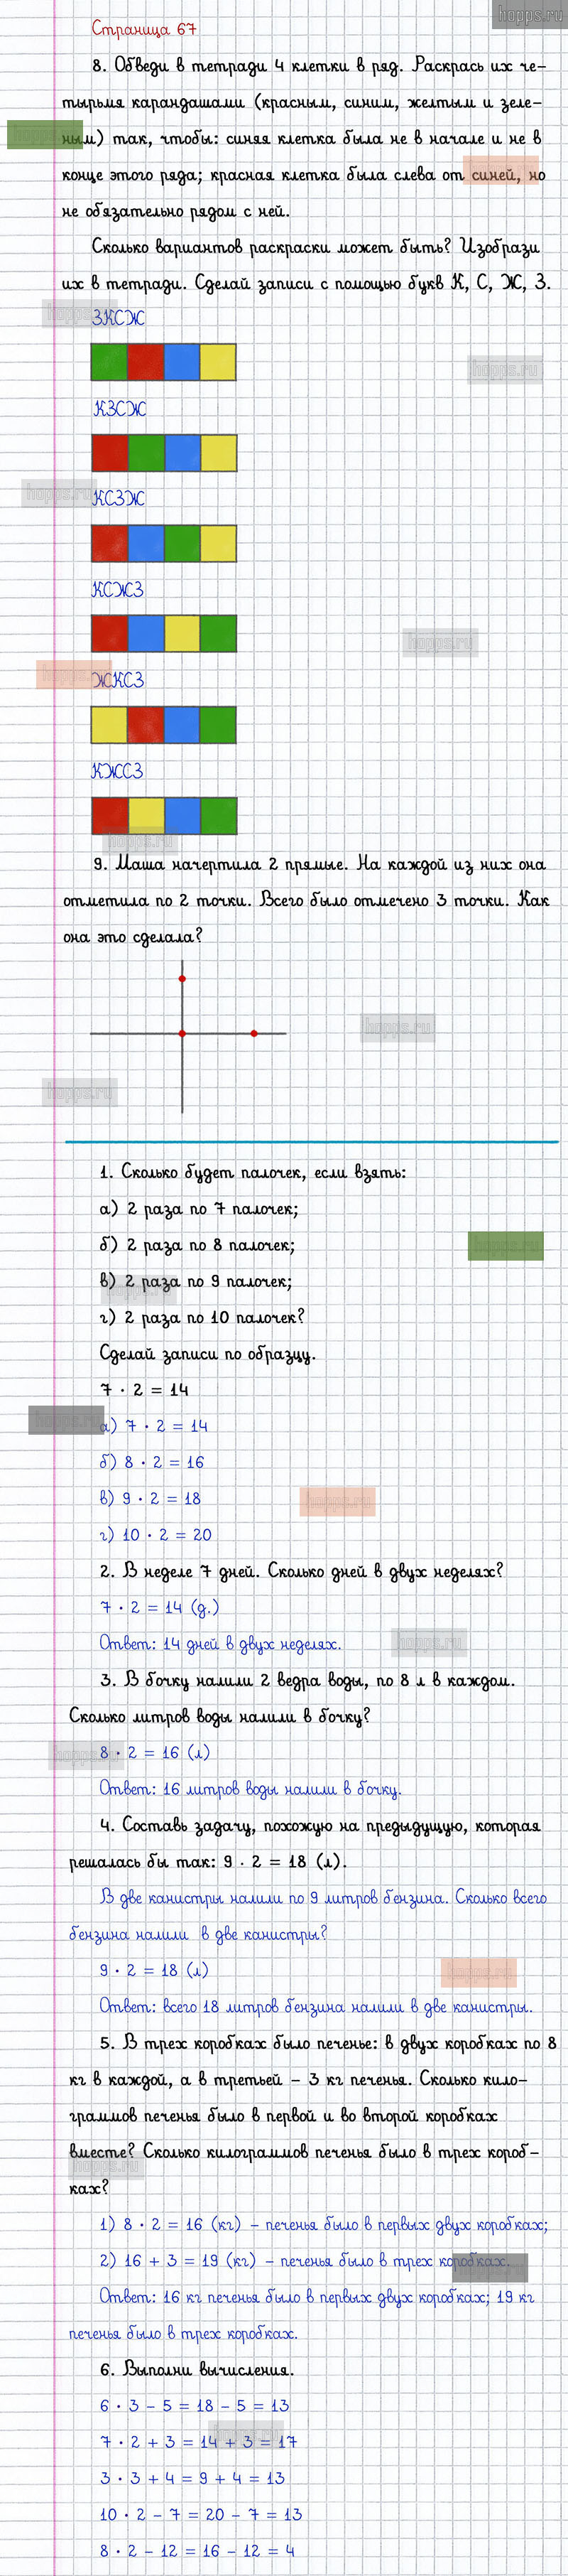 hopps.ru
Страница 67
8. Обведи в тетради 4 клетки в ряд. Раскрась их че-
тырьмя карандашами (красным, синим, желтым и зеле-
ным) так, чтобы: синяя клетка была не в начале и не в
конце этого ряда; красная клетка была слева от синей, но
не обязательно рядом с ней.
Сколько вариантов раскраски может быть? Изобрази
их в тетради. Сделай записи с помощью букв К, С, Ж, З.
ЗКСЖ
КЗСЖ
КСЗЖ
КСЖЗ
ЖКСЗ
КЖСЗ
9. Маша начертила 2 прямые. На каждой из них она
отметила по 2 точки. Всего было отмечено 3 точки. Как
она это сделала?
1. Сколько будет палочек, если взять:
а) 2 раза по 7 палочек;
б) 2 раза по 8 палочек;
в) 2 раза по 9 палочек;
г) 2 раза по 10 палочек?
Сделай записи по образцу.
7 · 2 = 14
а) 7 · 2 = 14
б) 8 · 2 = 16
в) 9 · 2 = 18
г) 10 · 2 = 20
2. В неделе 7 дней. Сколько дней в двух неделях?
7 · 2 = 14 (д.)
Ответ: 14 дней в двух неделях.
3. В бочку налили 2 ведра воды, по 8 л в каждом.
Сколько литров воды налили в бочку?
8 · 2 = 16 (л)
Ответ: 16 литров воды налили в бочку.
4. Составь задачу, похожую на предыдущую, которая
решалась бы так: 9 · 2 = 18 (л).
В две канистры налили по 9 литров бензина. Сколько всего
бензина налили в две канистры?
9 · 2 = 18 (л)
Ответ: всего 18 литров бензина налили в две канистры.
5. В трех коробках было печенье: в двух коробках по 8
кг в каждой, а в третьей – 3 кг печенья. Сколько кило-
граммов печенья было в первой и во второй коробках
вместе? Сколько килограммов печенья было в трех короб-
ках?
1) 8 · 2 = 16 (кг) – печенья было в первых двух коробках;
2) 16 + 3 = 19 (кг) – печенья было в трех коробках.
Ответ: 16 кг печенья было в первых двух коробках; 19 кг
печенья было в трех коробках.
6. Выполни вычисления.
6 · 3 – 5 = 18 – 5 = 13
7 · 2 + 3 = 14 + 3 = 17
3 · 3 + 4 = 9 + 4 = 13
10 · 2 – 7 = 20 – 7 = 13
8 · 2 – 12 = 16 – 12 = 4